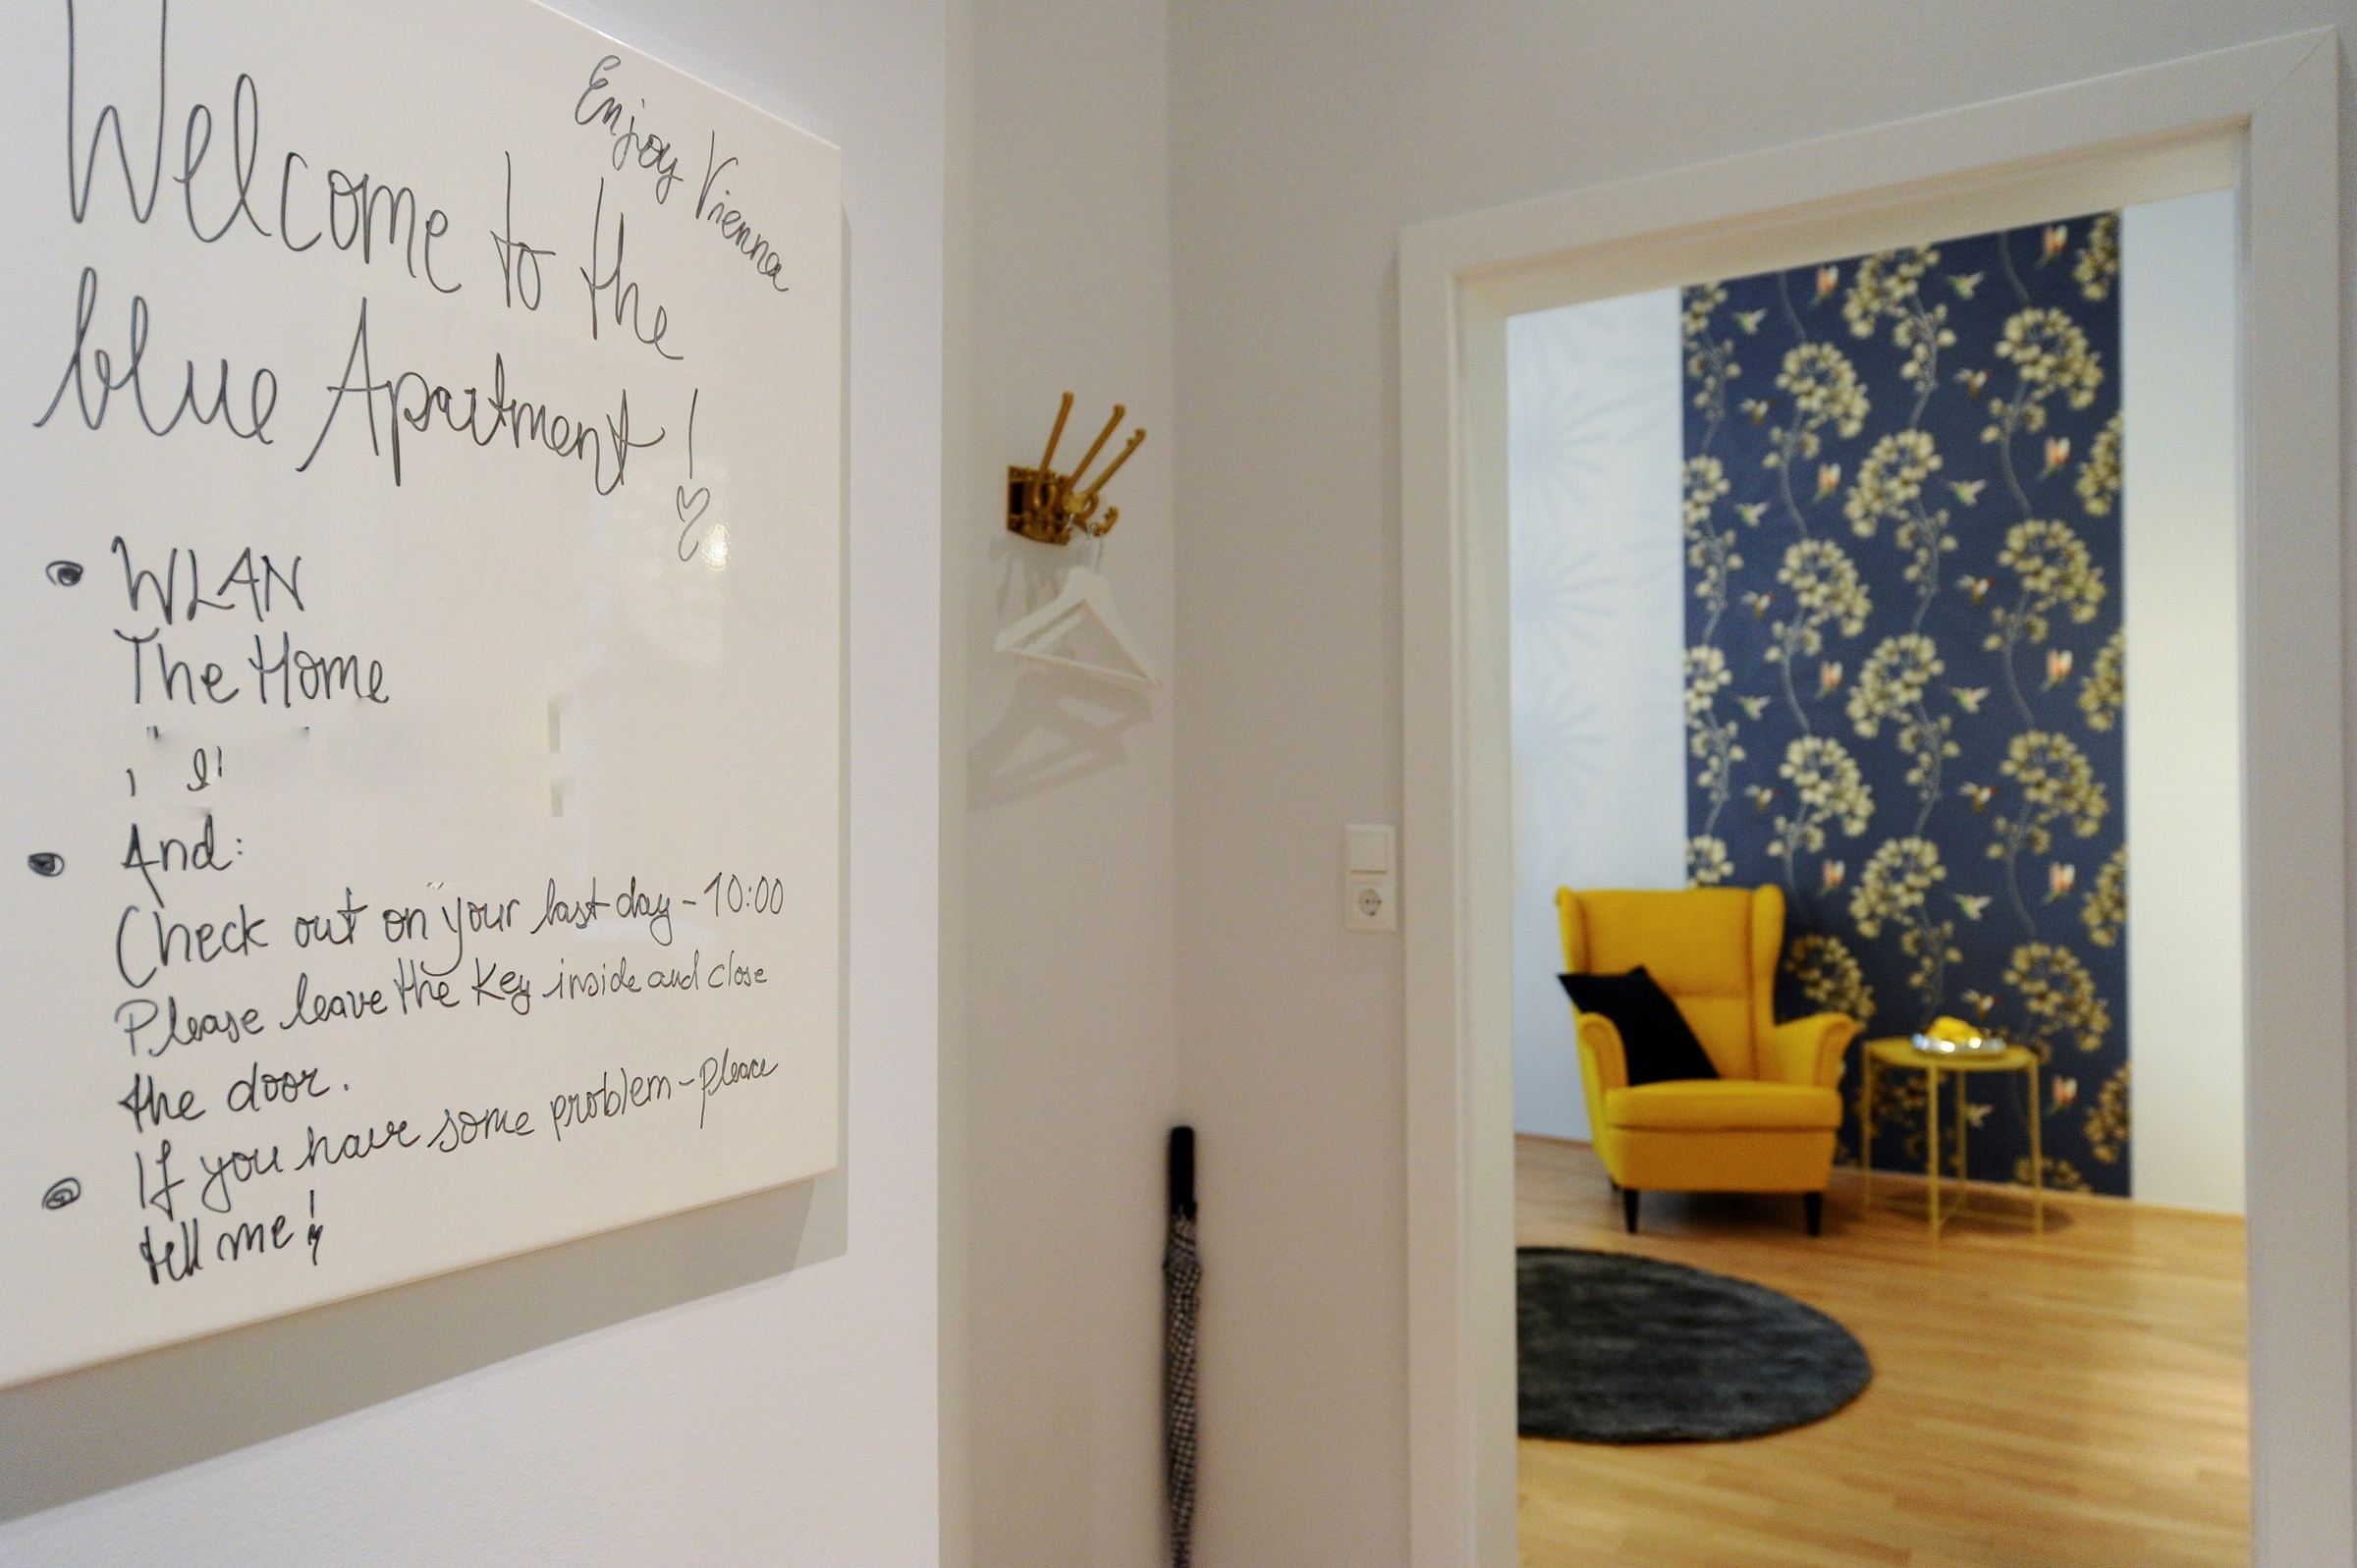 Enjoy Vienna
Welcome to the
blue Apartment!
WLAN
The Home
And:
Check out on your last day - 10:00
Please leave the key inside and close
the door.
If you have some problem - please
tell me!